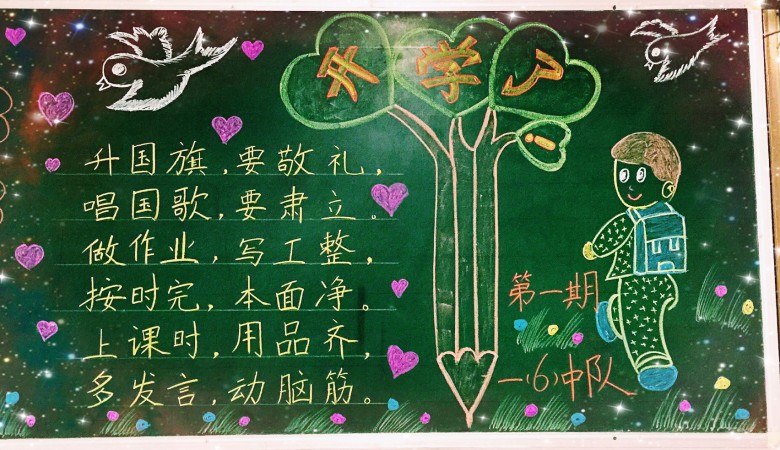 开学了!
升国旗,要敬礼,
唱国歌,要肃立。
做作业,写工整,
按时完,本面净。
上课时,用品齐,
多发言,动脑筋。
第一期
一(6)中队